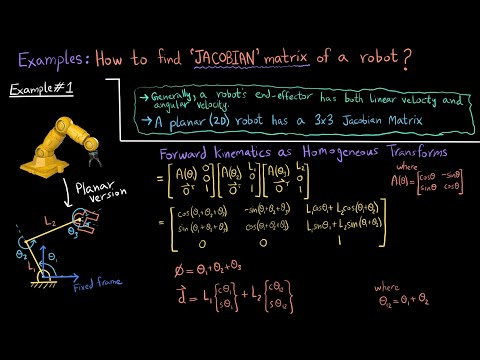 Examples: How to find 'JACOBIAN' matrix of a robot?
Example#1
→ Generally, a robot's end-effector has both linear velocity and
angular velocity.
→ A planar (2D) robot has a 3x3 Jacobian Matrix
Planar
version
L₂
θ₃
θ₂
L₁
θ₁
Fixed frame
Forward kinematics as Homogeneous Transforms
= [A(θ₁) 0; 0ᵀ 1] [A(θ₂) L₁ 0; 0ᵀ 1] [A(θ₃) L₂ 0; 0ᵀ 1]
where
A(θ) = [cosθ -sinθ; sinθ cosθ]
= [cos(θ₁+θ₂+θ₃) -sin(θ₁+θ₂+θ₃) L₁cosθ₁+L₂cos(θ₁+θ₂)
sin(θ₁+θ₂+θ₃) cos(θ₁+θ₂+θ₃) L₁sinθ₁+L₂sin(θ₁+θ₂)
0 0 1]
φ = θ₁+θ₂+θ₃
d = L₁{cθ₁ sθ₁} + L₂{cθ₁₂ sθ₁₂}
where
θ₁₂ = θ₁+θ₂